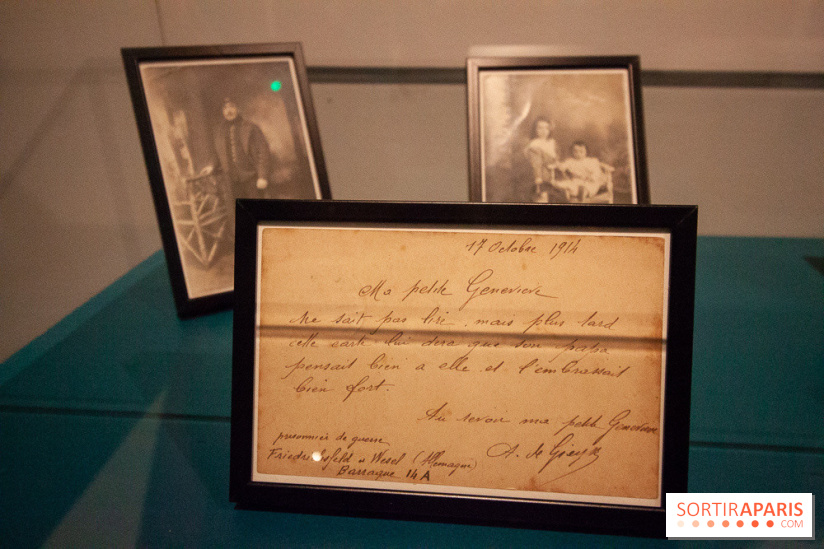 17 Octobre 1914
Ma petite Geneviève
Ne sait pas lire, mais plus tard
cette carte lui dira que son papa
pensait bien à elle et l'embrassait
bien fort.
Au revoir ma petite Geneviève
A. de
prisonnier de guerre
Friedrichsfeld à Wesel (Allemagne)
Barraque 14 A
SORTIRAPARIS
.COM